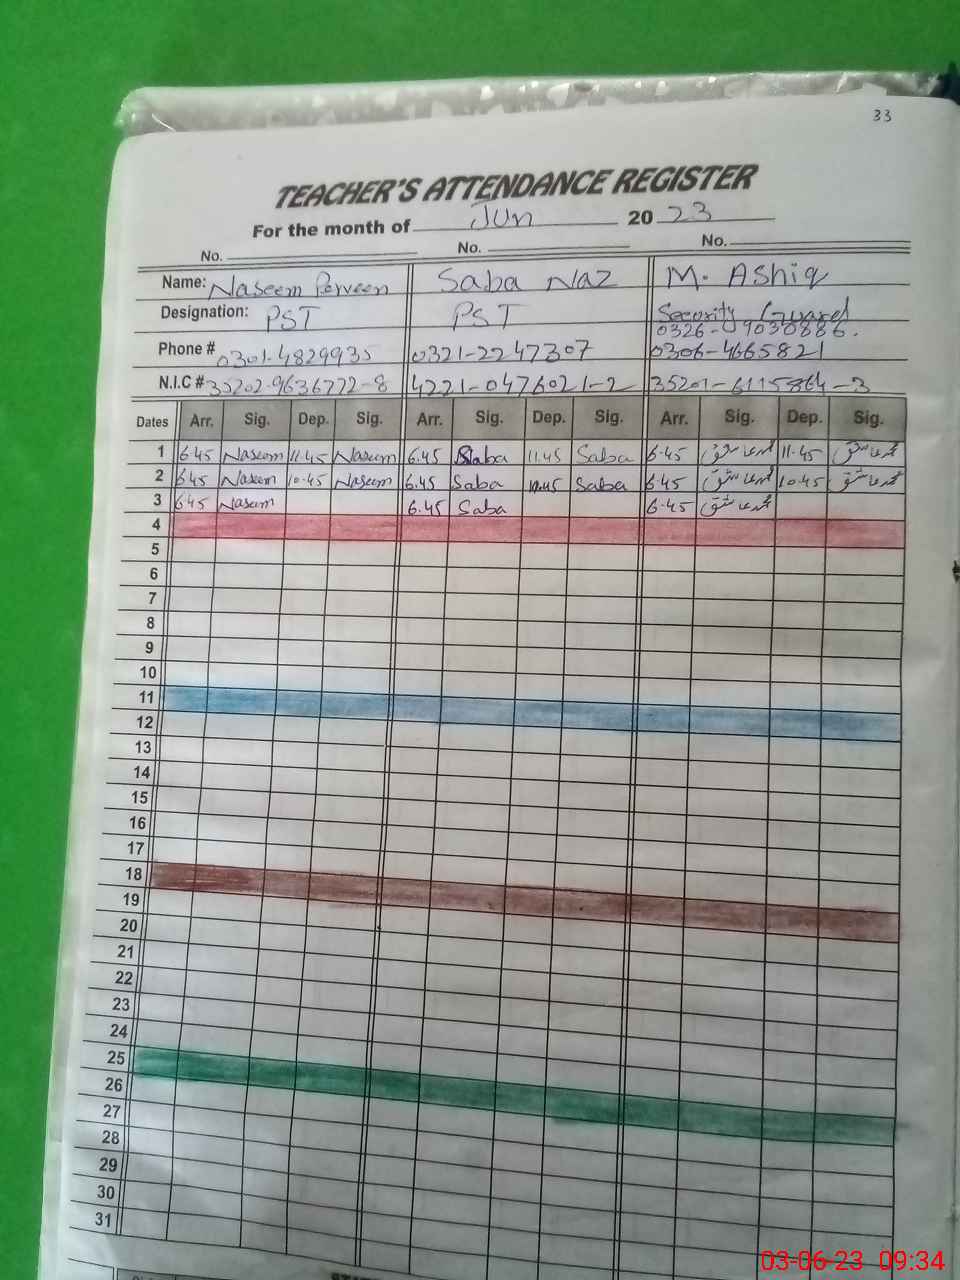 33
TEACHER'S ATTENDANCE REGISTER
For the month of Jun 20 23
No. No. No.
Name: Naseem Perveen Saba Naz M. Ashiq
Designation: PST PST Security Guard
0326-9030886.
Phone # 0301-4829935 0321-2247307 0306-4665821
N.I.C # 35202-9636772-8 4221-0476021-2 35201-6115864-3
Dates Arr. Sig. Dep. Sig. Arr. Sig. Dep. Sig. Arr. Sig. Dep. Sig.
1 6.45 Naseem 11.45 Naseem 6.45 Saba 11.45 Saba 6.45 محمد عاشق 11.45 محمد عاشق
2 6.45 Naseem 10.45 Naseem 6.45 Saba 10.45 Saba 6.45 محمد عاشق 10.45 محمد عاشق
3 6.45 Naseem 6.45 Saba 6.45 محمد عاشق
4
5
6
7
8
9
10
11
12
13
14
15
16
17
18
19
20
21
22
23
24
25
26
27
28
29
30
31
03-06-23 09:34